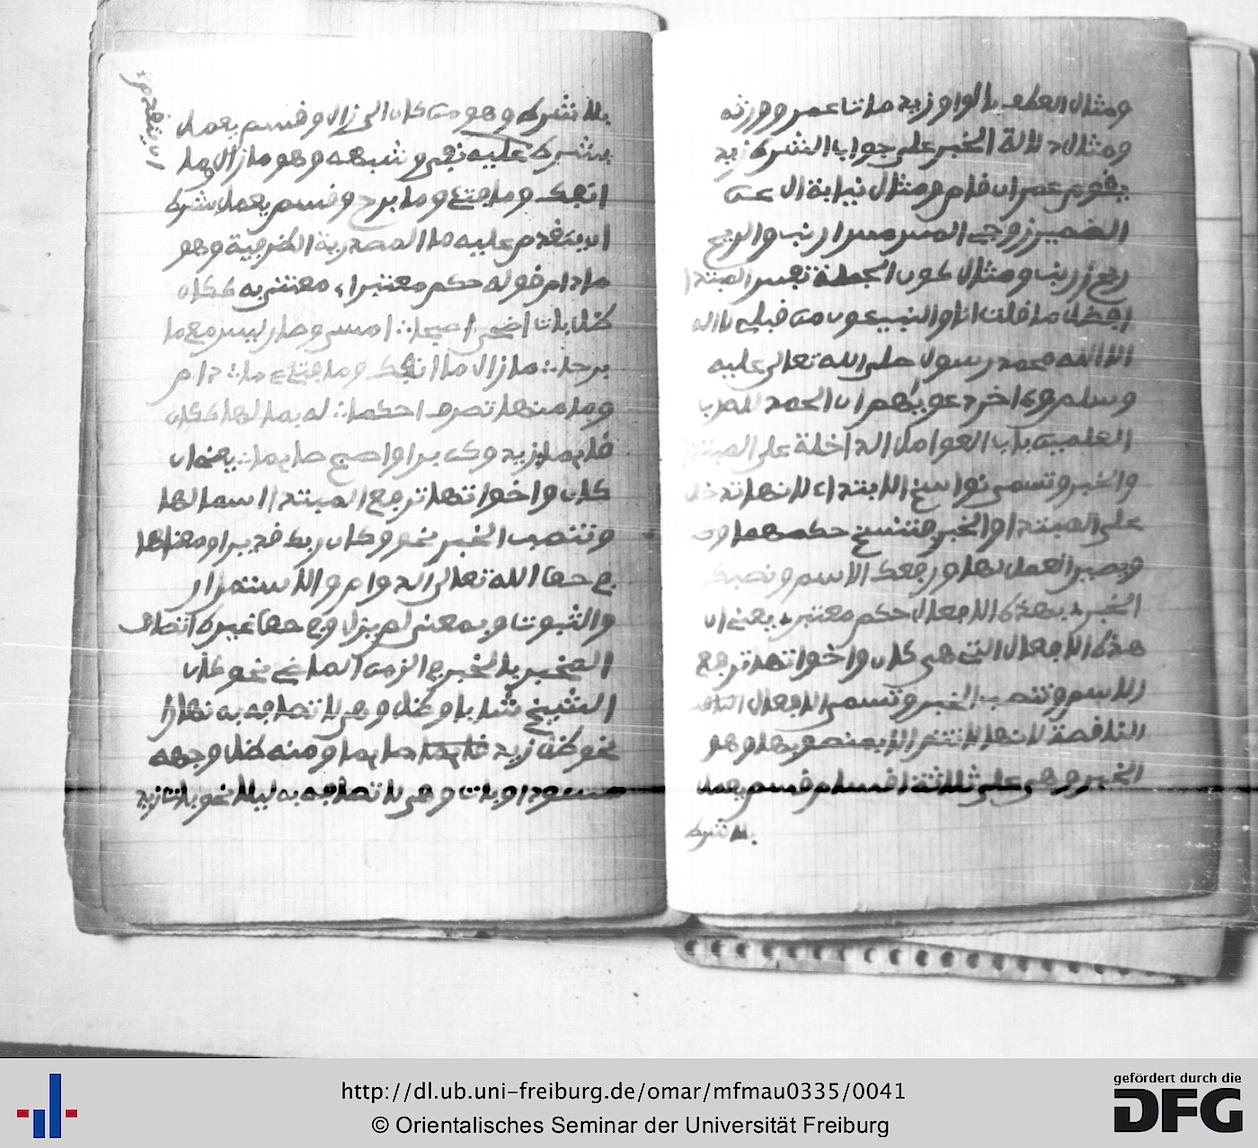 ومثال العطف بالواو زيد ماتا عمر ورزقه
ومثال دلالة الخبر على جواب الشرط زيد
يقوم عمر ان قام ومثال نيابة ال عن
الضمير زوجي المس مس ارنب والريح
ريح زرنب ومثال كون الجملة نفس المبتدا
افضل ما قلت انا والنبيئون من قبلي لا اله
الا الله محمد رسول صلى الله تعالى عليه
وسلم و اخر دعويهم ان الحمد لله رب
العلمين باب العوامل الداخلة على المبتدا
والخبر وتسمى نواسخ الابتداء لانها تدخل
على المبتدا والخبر فتنسخ حكمهما
العمل لها ورفعك الاسم ونصبك
الخبر بهذه الافعال حكم معتبر يعني ان
هذه الافعال التي هي كان واخواتها ترفع
الاسم وتنصب الخبر وتسمى الافعال
الناقصة لانها لا تتم الا بمنصوبها وهو
الخبر وهي على ثلثة اقسام قسم يعمل
بلا شرط
بلا شرط وهو من كان الى زال وقسم يعمل
بشرط عليه نفي وشبهه وهو ما زال وما
انفك وما فتئ وما برح وقسم يعمل بشرط
ان يتقدم عليه ما المصدرية الظرفية وهو
ما دام قوله حكم معتبر ككان
ظل بات اضحى اصبحا ∴ امسى وصار ليس مع ما
برحا ∴ ما زال ما انفك وما فتئ ما ∴ دام
وما منها تصرف احكما ∴ له بما لها ككان
قائما زيد وكن برا واصبح صائما ∴ يعني ان
كان واخواتها ترفع المبتدا اسما لها
وتنصب الخبر نحو وكان ربك قديرا ومعناها
في حق الله تعالى الدوام والاستمرار
والثبوت وبمعنى لم يزل وفي حق غيره اتصاف
المخبر بالخبر في الزمن الماضي نحو كان
الشيخ شابا وظل وهي لاتصافه به نهارا
نحو ظل زيد صائما ومنه ظل وجهه
مسودا وبات وهي لاتصافه به ليلا نحو بات زيد
ان يتقدم
http://dl.ub.uni-freiburg.de/omar/mfmau0335/0041
© Orientalisches Seminar der Universität Freiburg
gefördert durch die
DFG